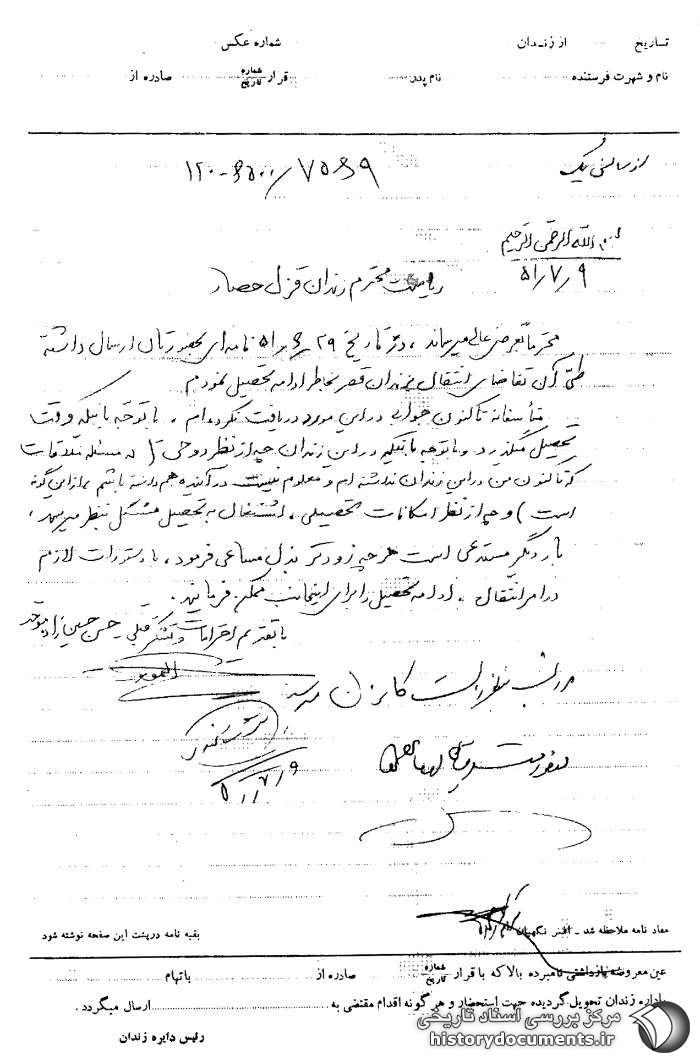 تاریخ از زندان شماره عکس
نام و شهرت فرستنده نام پدر قرار شماره تاریخ صادره از
از سالن یک
۱۲۰-۶۵۰۰/۷۵۶۹
بسم الله الرحمن الرحیم
۵۱/۷/۹
ریاست محترم زندان قزل حصار
محترماً بعرض عالی میرساند ، در تاریخ ۵۱/۶/۲۹ نامه‌ای بحضورتان ارسال داشته
طی آن تقاضای انتقال بزندان قصر بخاطر ادامه تحصیل نمودم
متأسفانه تاکنون جوابی در این مورد دریافت نکرده‌ام ، با توجه باینکه وقت
تحصیل میگذرد و با توجه باینکه در این زندان چه از نظر روحی ( که مسئله ملاقات
که تاکنون من در این زندان نداشته ام و معلوم نیست در آینده هم داشته باشم ، از این گونه
است ) و چه از نظر امکانات تحصیلی ، اشتغال به تحصیل مشکل بنظر میرسد ،
بار دیگر مستدعی است هر چه زودتر بذل مساعی فرموده ، با دستورات لازم
در امر انتقال ، ادامه تحصیل را برای اینجانب ممکن فرمائید .
با تقدیم احترامات و تشکر قلبی حسن حسین زاده موحد
۵۱/۷/۹
مفاد نامه ملاحظه شد ـ افسر نگهبان بقیه نامه در پشت این صفحه نوشته شود
عین معروضه بازداشتی نامبرده بالا که با قرار شماره تاریخ صادره از باتهام
باداره زندان تحویل گردیده جهت استحضار و هر گونه اقدام مقتضی به ارسال میگردد .
رئیس دایره زندان
مرکز بررسی اسناد تاریخی
historydocuments.ir